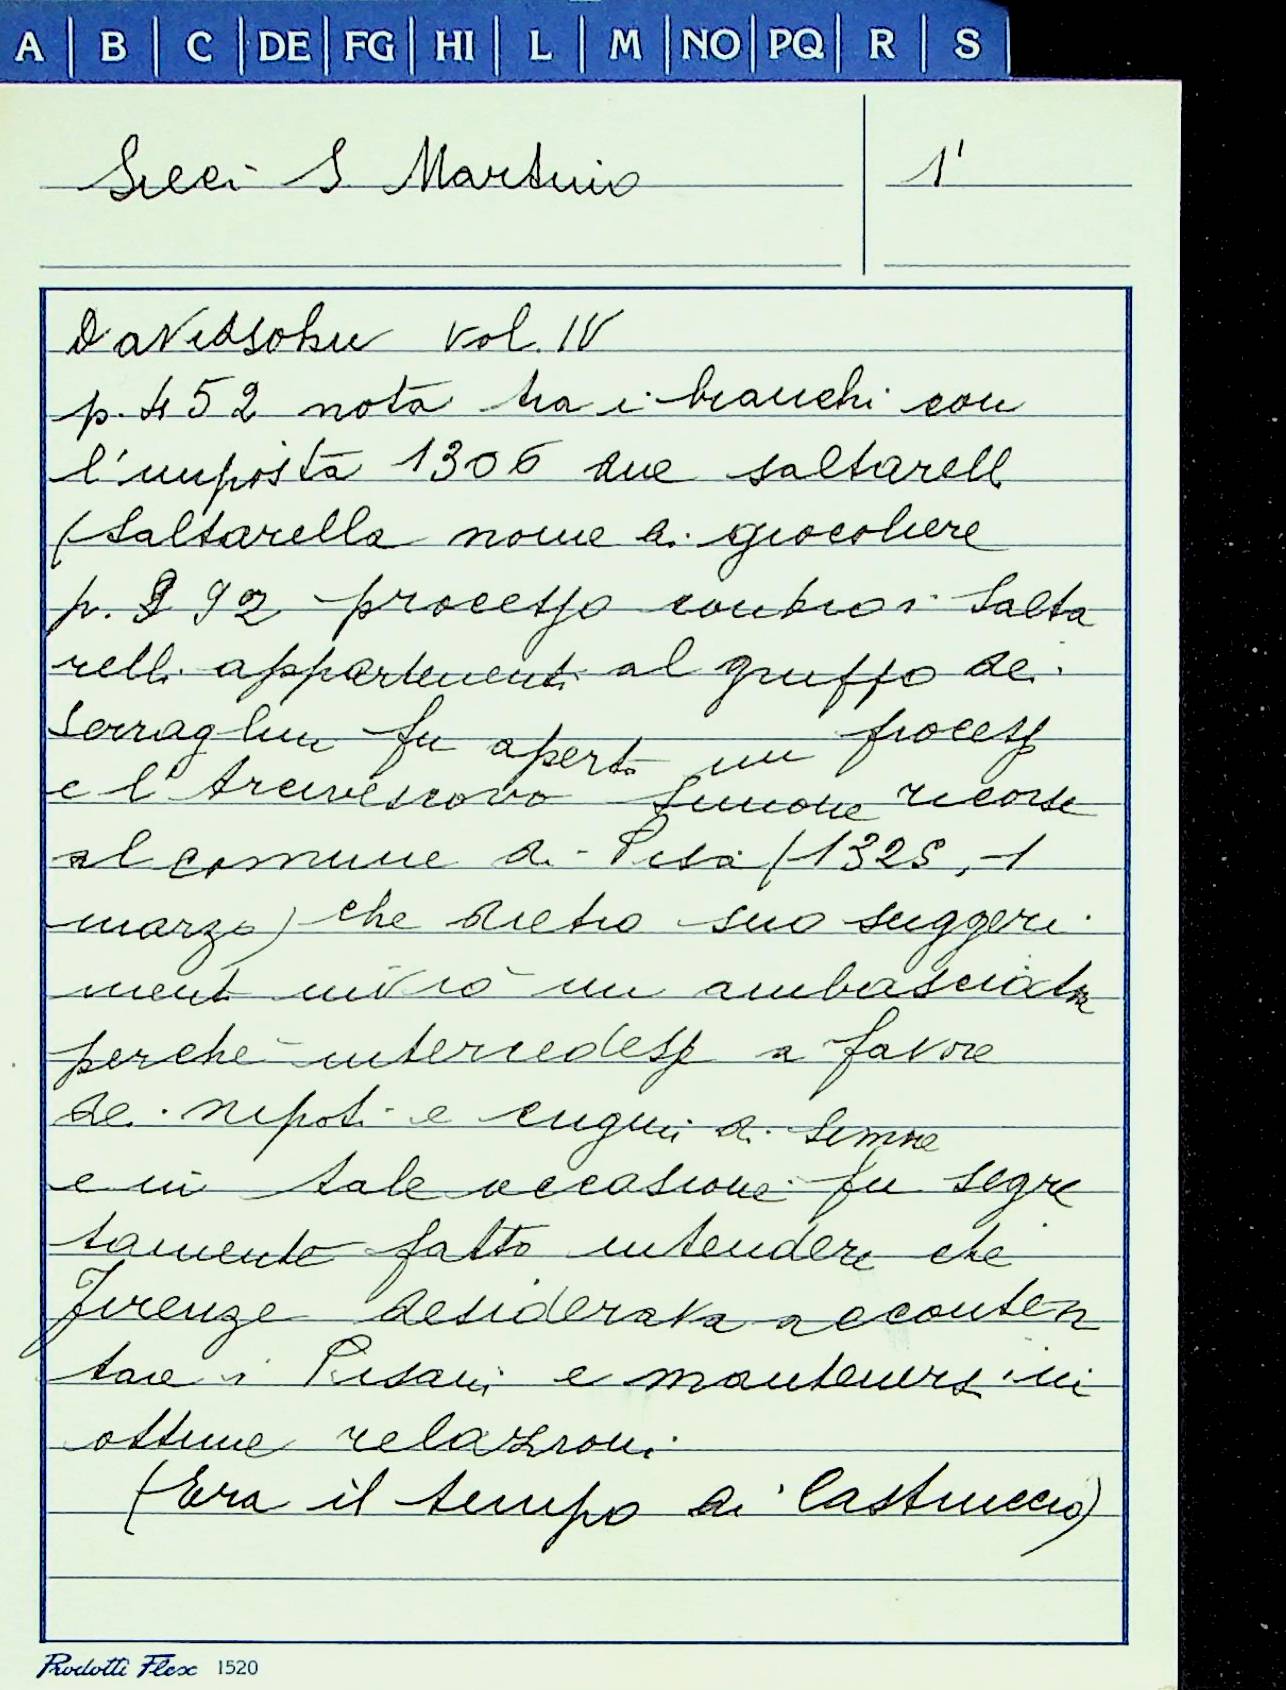 A B C DE FG HI L M NO PQ R S
Sieci S Martino 1'
Davidsohn vol. IV
p. 452 nota tra i bianchi con
l'imposta 1306 due saltarell
(Saltarella nome di giocoliere
p. 992 processo contro i Salta
relli appartenenti al gruppo dei
Serraglini fu aperto un process
e l'Arcivescovo Simone ricorse
al comune di Pisa (1325, 1
marzo) che dietro suo suggeri
ment inviò un ambasciatre
perché intercedesse a favore
dei nipoti e cugini di Simone
e in tale occasione fu segre
tamente fatto intendere che
Firenze desiderava acconten
tare i Pisani e mantenersi in
ottime relazioni
(Era il tempo di Castruccio)
Prodotti Flex 1520